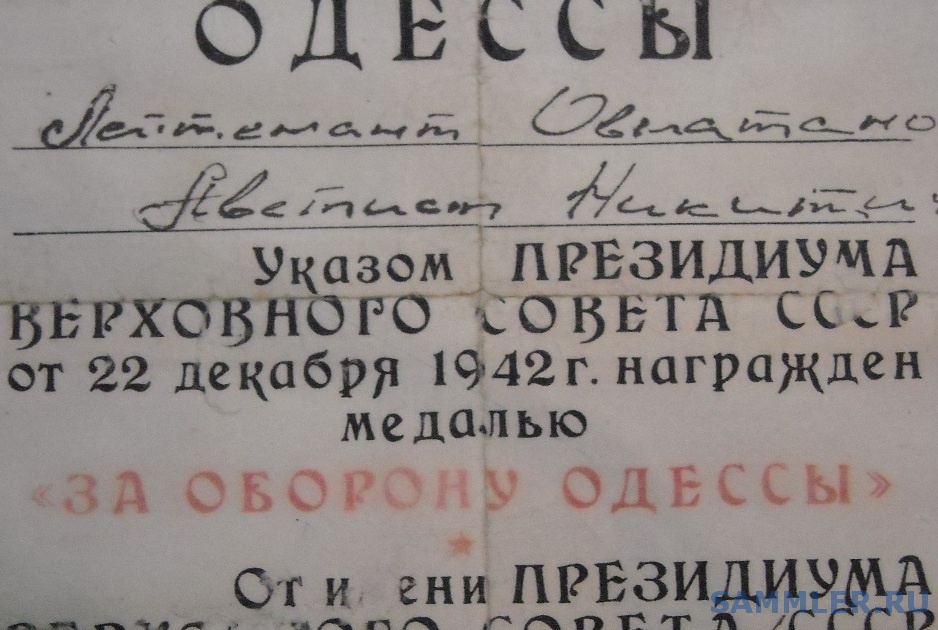 ОДЕССЫ
Лейтенант Овнатано
Аветист Никити
Указом ПРЕЗИДИУМА
ВЕРХОВНОГО СОВЕТА СССР
от 22 декабря 1942 г. награжден
медалью
«ЗА ОБОРОНУ ОДЕССЫ»
От имени ПРЕЗИДИУМА
SAMMLER.RU
СОВЕТА СССР